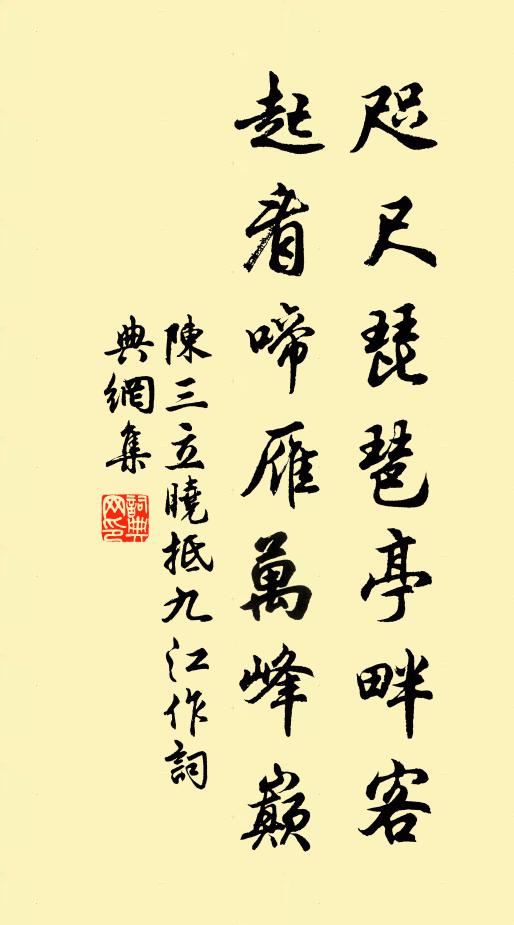 咫尺琵琶亭畔客
起看啼雁萬峰巔
陳三立曉抵九江作詞
典網集
詞典網印